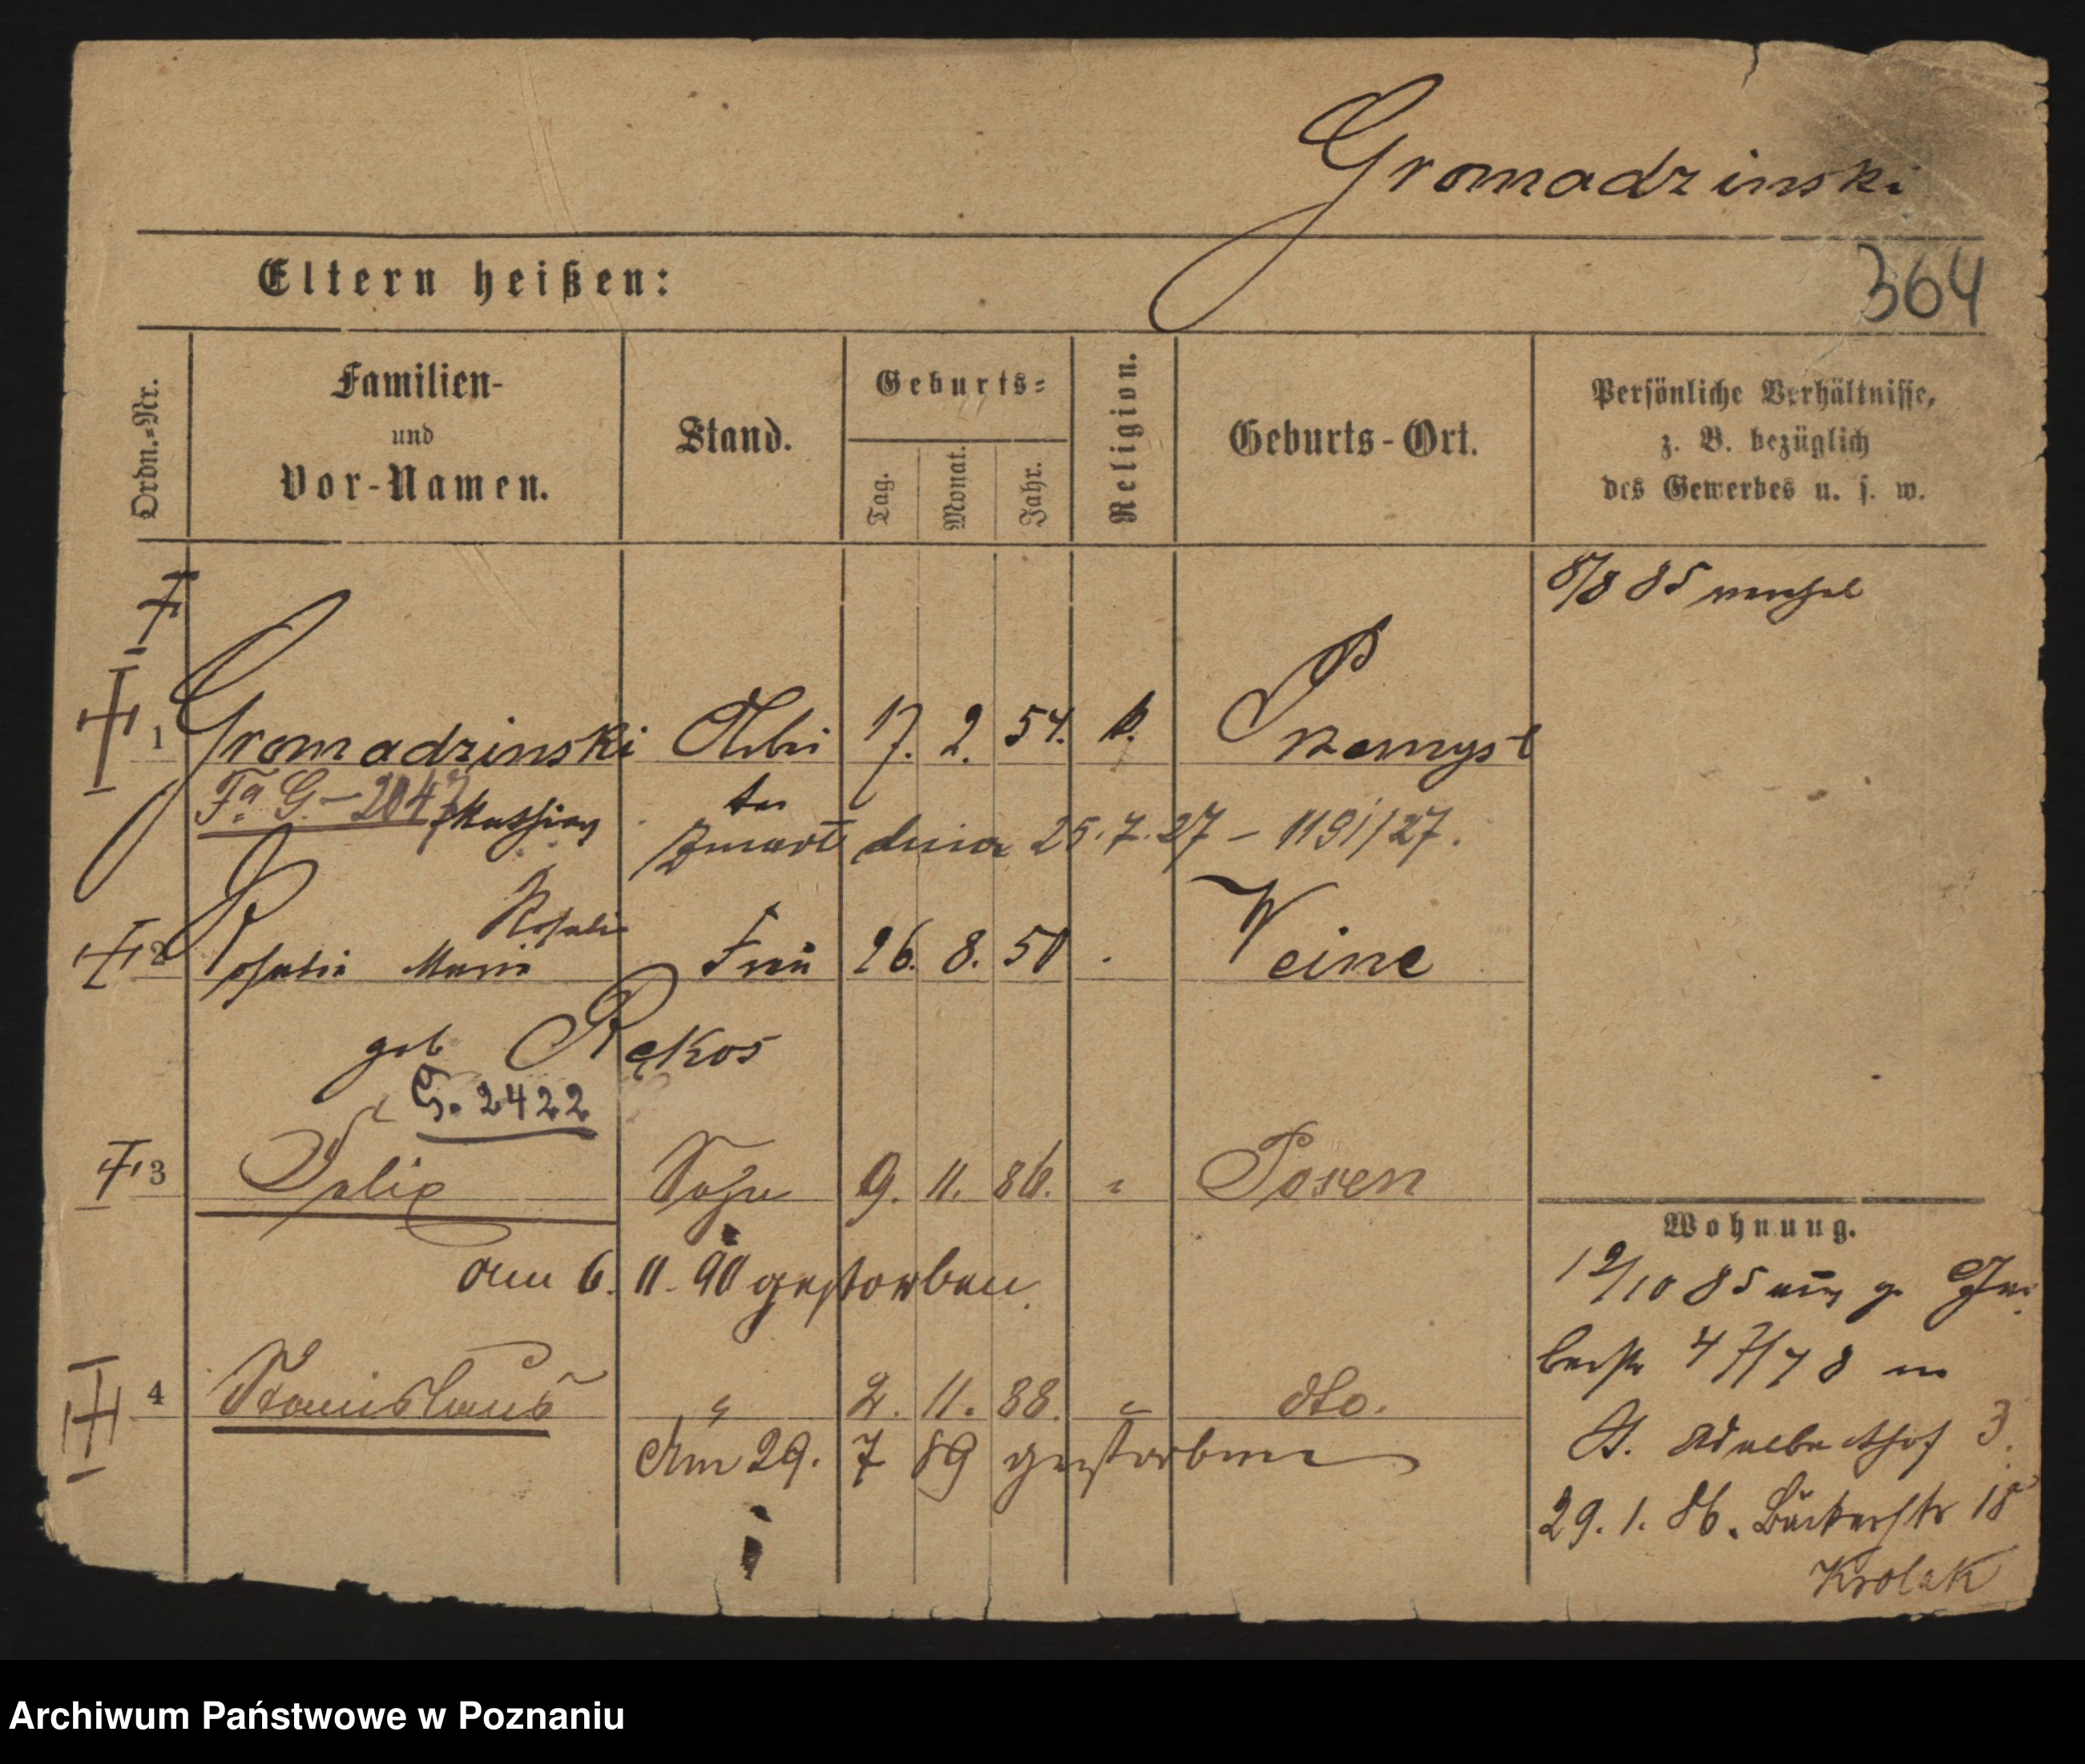 Gromadzinski
364
Eltern heißen:
Ordn.=Nr.
Familien-
und
Vor-Namen.
Stand.
Geburts=
Tag.
Monat.
Jahr.
Religion.
Geburts-Ort.
Persönliche Verhältnisse,
z. B. bezüglich
des Gewerbes u. s. w.
8/8 85
1 Gromadzinski 17. 2. 54. k. Przemysł
Fa G. - 2047
Zmarł dnia 25.7.27 - 1191/27.
Rosalie
2 Rosalie Maria Frau 26. 8. 50 Weine
geb Rękos
G. 2422
3 Felix Sohn 9. 11. 86. " Posen
am 6. 11. 90 gestorben.
4 Stanislaus " 2. 11. 88. " dto.
Am 29. 7 89 gestorben
Wohnung.
12/10 85
47/48
St. Adalberthof 3.
29. 1. 86. Bäckerstr 18
Krolak
Archiwum Państwowe w Poznaniu